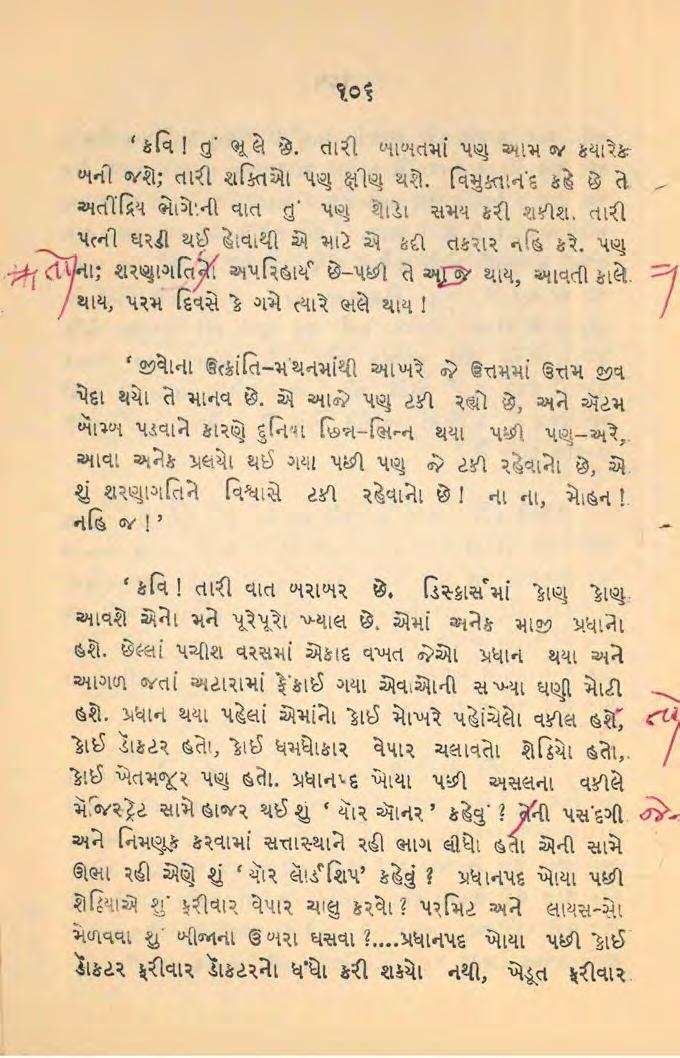 ૧૦૬
‘કવિ! તું ભૂલે છે. તારી બાબતમાં પણ આમ જ કયારેક
બની જશે; તારી શક્તિઓ પણ ક્ષીણ થશે. વિમુક્તાનંદ કહે છે તે
અતીંદ્રિય ભોગેાની વાત તું પણ થોડો સમય કરી શકીશ. તારી
પત્ની ઘરડી થઈ હોવાથી એ માટે એ કદી તકરાર નહિ કરે. પણ
ના; શરણાગતિનો અપરિહાર્ય છે–પછી તે આજ થાય, આવતી કાલે
થાય, પરમ દિવસે કે ગમે ત્યારે ભલે થાય!
‘જીવોના ઉત્ક્રાંતિ–મંથનમાંથી આખરે જે ઉત્તમમાં ઉત્તમ જીવ
પેદા થયો તે માનવ છે. એ આજે પણ ટકી રહ્યો છે, અને ઍટમ
બૉમ્બ પડવાને કારણે દુનિયા છિન્ન–ભિન્ન થયા પછી પણ–અરે,
આવા અનેક પ્રલયો થઈ ગયા પછી પણ જે ટકી રહેવાનો છે, એ
શું શરણાગતિને વિશ્વાસે ટકી રહેવાનો છે! ના ના, મોહન!
નહિ જ!’
‘કવિ! તારી વાત બરાબર છે. ડિસ્કાર્સમાં કોણ કોણ
આવશે એનો મને પૂરેપૂરો ખ્યાલ છે. એમાં અનેક માજી પ્રધાનો
હશે. છેલ્લાં પચીશ વરસમાં એકાદ વખત જેઓ પ્રધાન થયા અને
આગળ જતાં અટારામાં ફેંકાઈ ગયા એવાઓની સંખ્યા ઘણી મોટી
હશે. પ્રધાન થયા પહેલાં એમાંનો કોઈ મોખરે પહોંચેલો વકીલ હશે,
કોઈ ડૉકટર હતો, કોઈ ધમધોકાર વેપાર ચલાવતો શેઠિયો હતો,
કોઈ ખેતમજૂર પણ હતો. પ્રધાનપદ ખોયા પછી અસલના વકીલે
મૅજિસ્ટ્રેટ સામે હાજર થઈ શું ‘યૉર ઑનર’ કહેવું? તેની પસંદગી
અને નિમણૂક કરવામાં સત્તાસ્થાને રહી ભાગ લીધો હતો એની સામે
ઊભા રહી એણે શું ‘યૉર લૉર્ડશિપ’ કહેવું? પ્રધાનપદ ખોયા પછી
શેઠિયાએ શું ફરીવાર વેપાર ચાલુ કરવો? પરમિટ અને લાયસન્સો
મેળવવા શું બીજાના ઉંબરા ઘસવા?....પ્રધાનપદ ખોયા પછી કોઈ
ડૉકટર ફરીવાર ડૉકટરનો ધંધો કરી શકયો નથી, ખેડૂત ફરીવાર